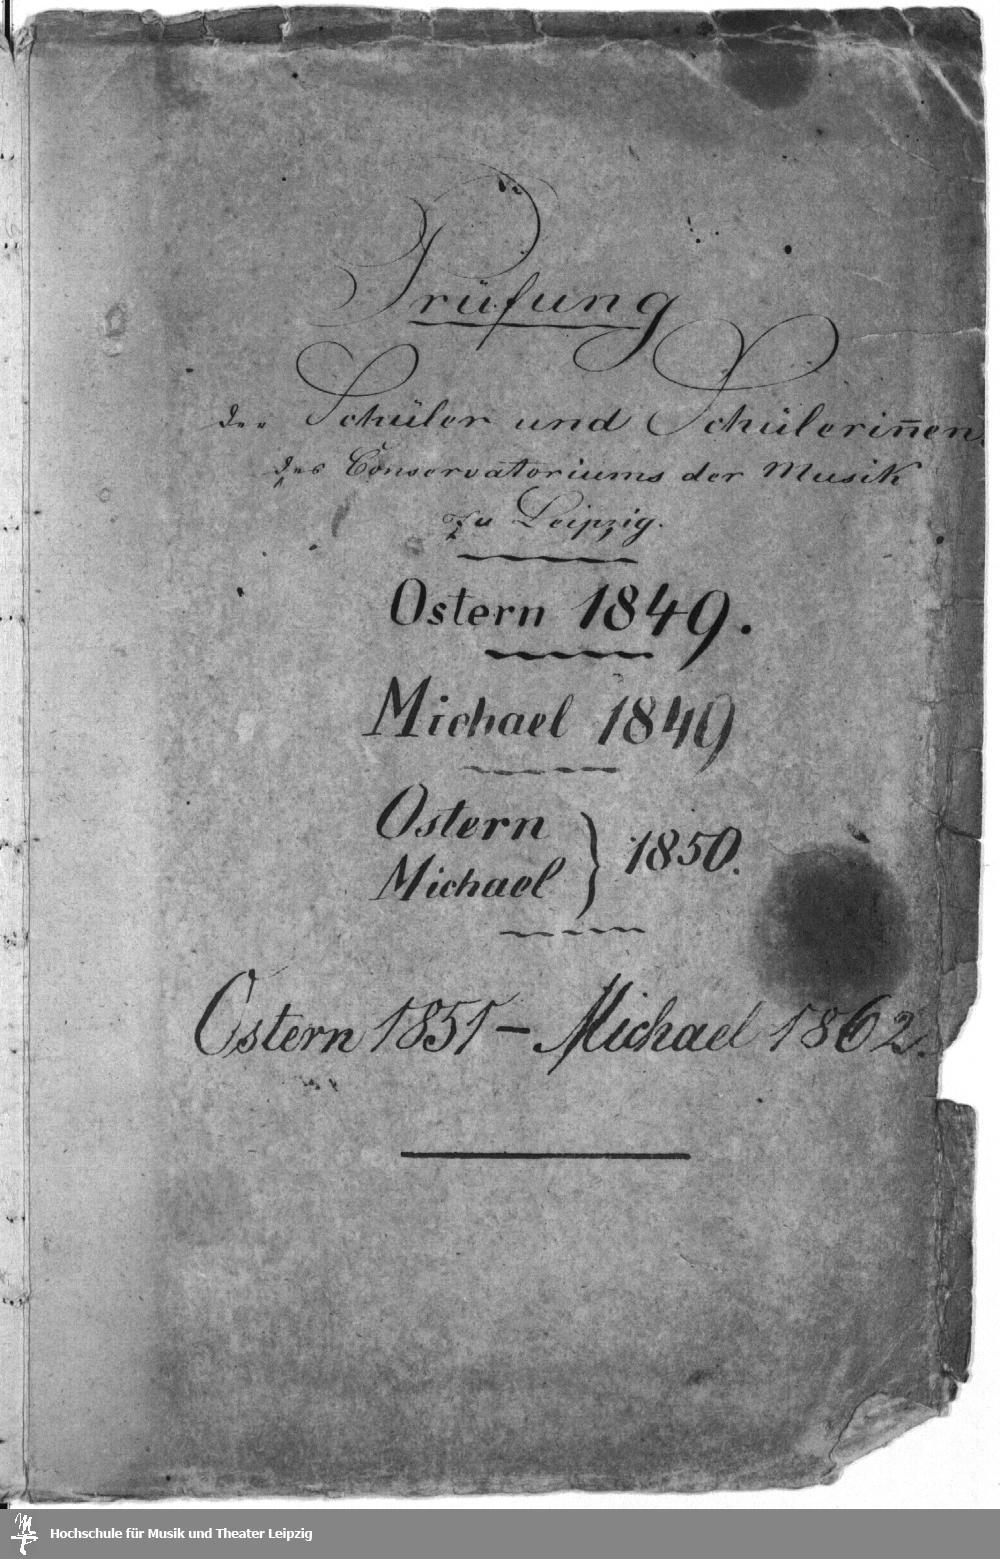 Prüfung
der Schüler und Schülerin̄en
des Conservatoriums der Musik
zu Leipzig.
Ostern 1849.
Michael 1849
Ostern
Michael } 1850.
Ostern 1851 – Michael 1862.
Hochschule für Musik und Theater Leipzig